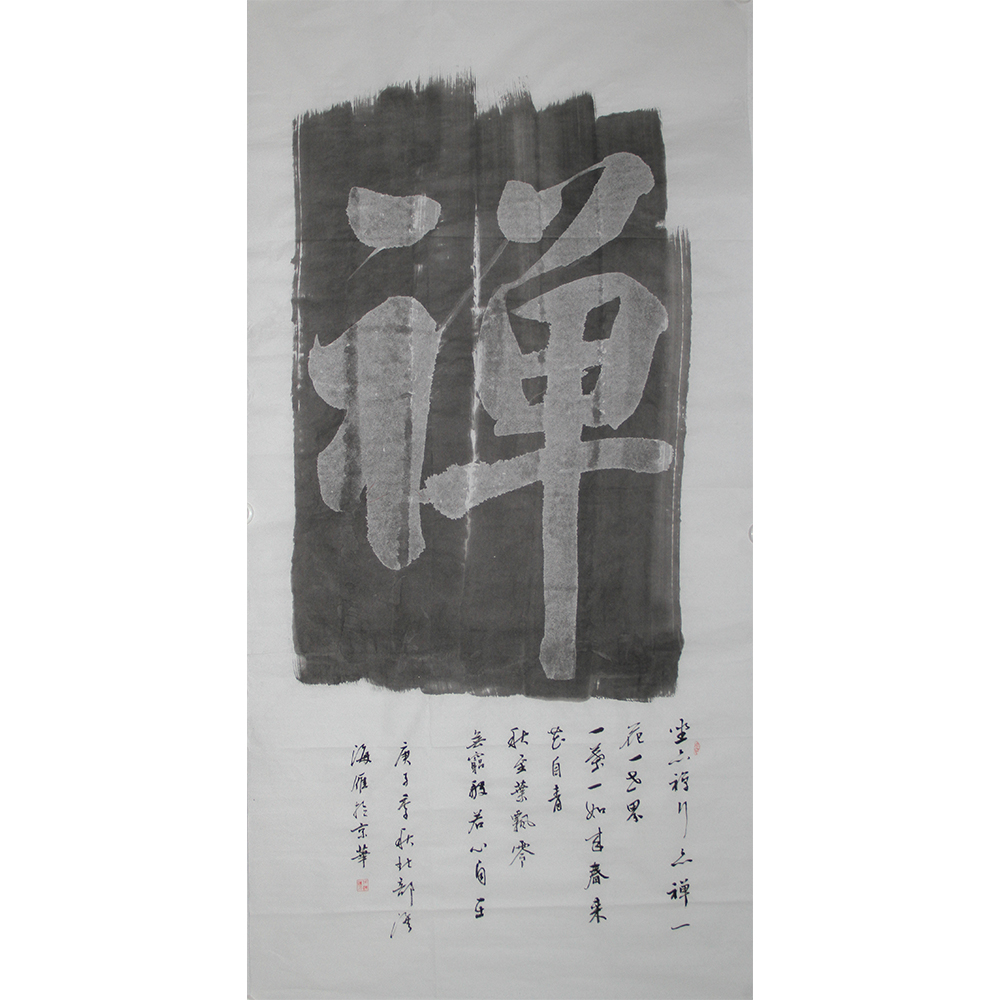 禅
坐亦禅行亦禅一
花一世界
一葉一如来春来
花自青
秋至葉飄零
無窮般若心自在
庚子季秋北部湾
海雁於京華